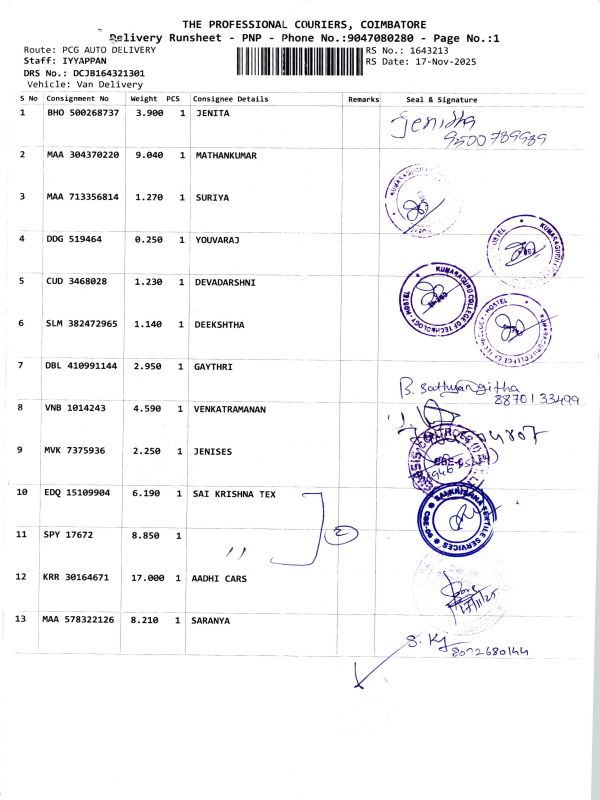 THE PROFESSIONAL COURIERS, COIMBATORE
Delivery Runsheet - PNP - Phone No.:9047080280 - Page No.:1
Route: PCG AUTO DELIVERY RS No.: 1643213
Staff: IYYAPPAN RS Date: 17-Nov-2025
DRS No.: DCJB164321301
Vehicle: Van Delivery
S No Consignment No Weight PCS Consignee Details Remarks Seal & Signature
1 BHO 500268737 3.900 1 JENITA Jenitha
9500789989
2 MAA 304370220 9.040 1 MATHANKUMAR
3 MAA 713356814 1.270 1 SURIYA
4 DDG 519464 0.250 1 YOUVARAJ
5 CUD 3468028 1.230 1 DEVADARSHNI KUMARAGURU COLLEGE OF TECHNOLOGY-HOSTEL
6 SLM 382472965 1.140 1 DEEKSHTHA
7 DBL 410991144 2.950 1 GAYTHRI B. Sathyangitha
8870133499
8 VNB 1014243 4.590 1 VENKATRAMANAN
9 MVK 7375936 2.250 1 JENISES
10 EDQ 15109904 6.190 1 SAI KRISHNA TEX SAI KRISHNA TEXTILE SERVICES
11 SPY 17672 8.850 1 ,, 2
12 KRR 30164671 17.000 1 AADHI CARS 17/11/25
13 MAA 578322126 8.210 1 SARANYA S. Kj
8072680144